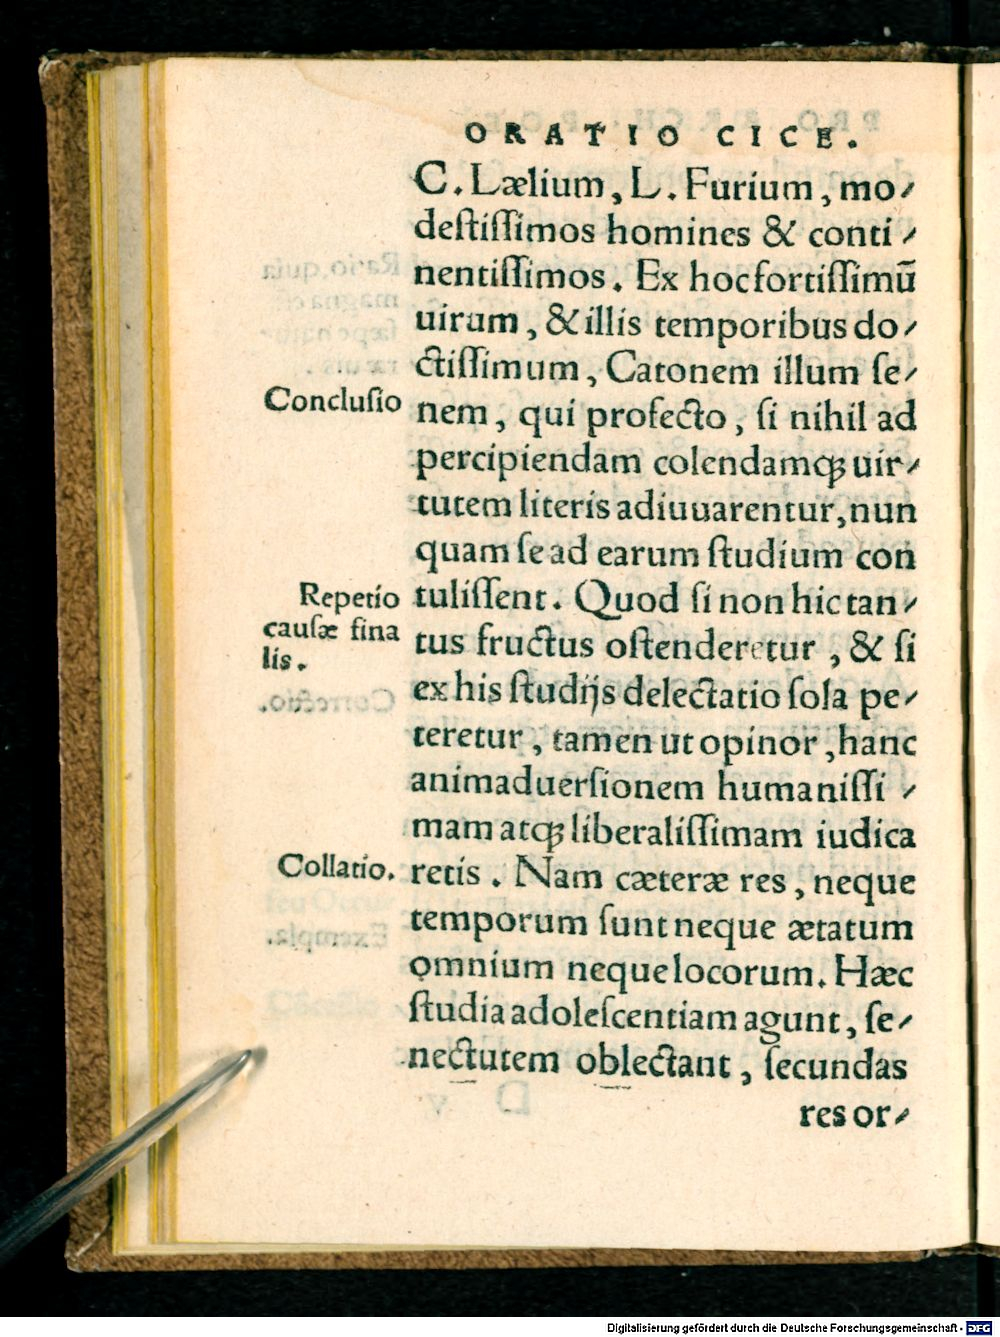 ORATIO CICE.
C. Lælium, L. Furium, mo-
destissimos homines & conti-
nentissimos. Ex hoc fortissimū
uirum, & illis temporibus do-
ctissimum, Catonem illum se-
Conclusio
nem, qui profecto, si nihil ad
percipiendam colendamq; uir-
tutem literis adiuuarentur, nun
quam se ad earum studium con
Repetio
causæ fina
lis.
tulissent. Quod si non hic tan-
tus fructus ostenderetur, & si
ex his studijs delectatio sola pe-
teretur, tamen ut opinor, hanc
animaduersionem humanissi-
mam atq; liberalissimam iudica
Collatio.
retis. Nam cæteræ res, neque
temporum sunt neque ætatum
omnium neque locorum. Hæc
studia adolescentiam agunt, se-
nectutem oblectant, secundas
res or-
Digitalisierung gefördert durch die Deutsche Forschungsgemeinschaft - DFG